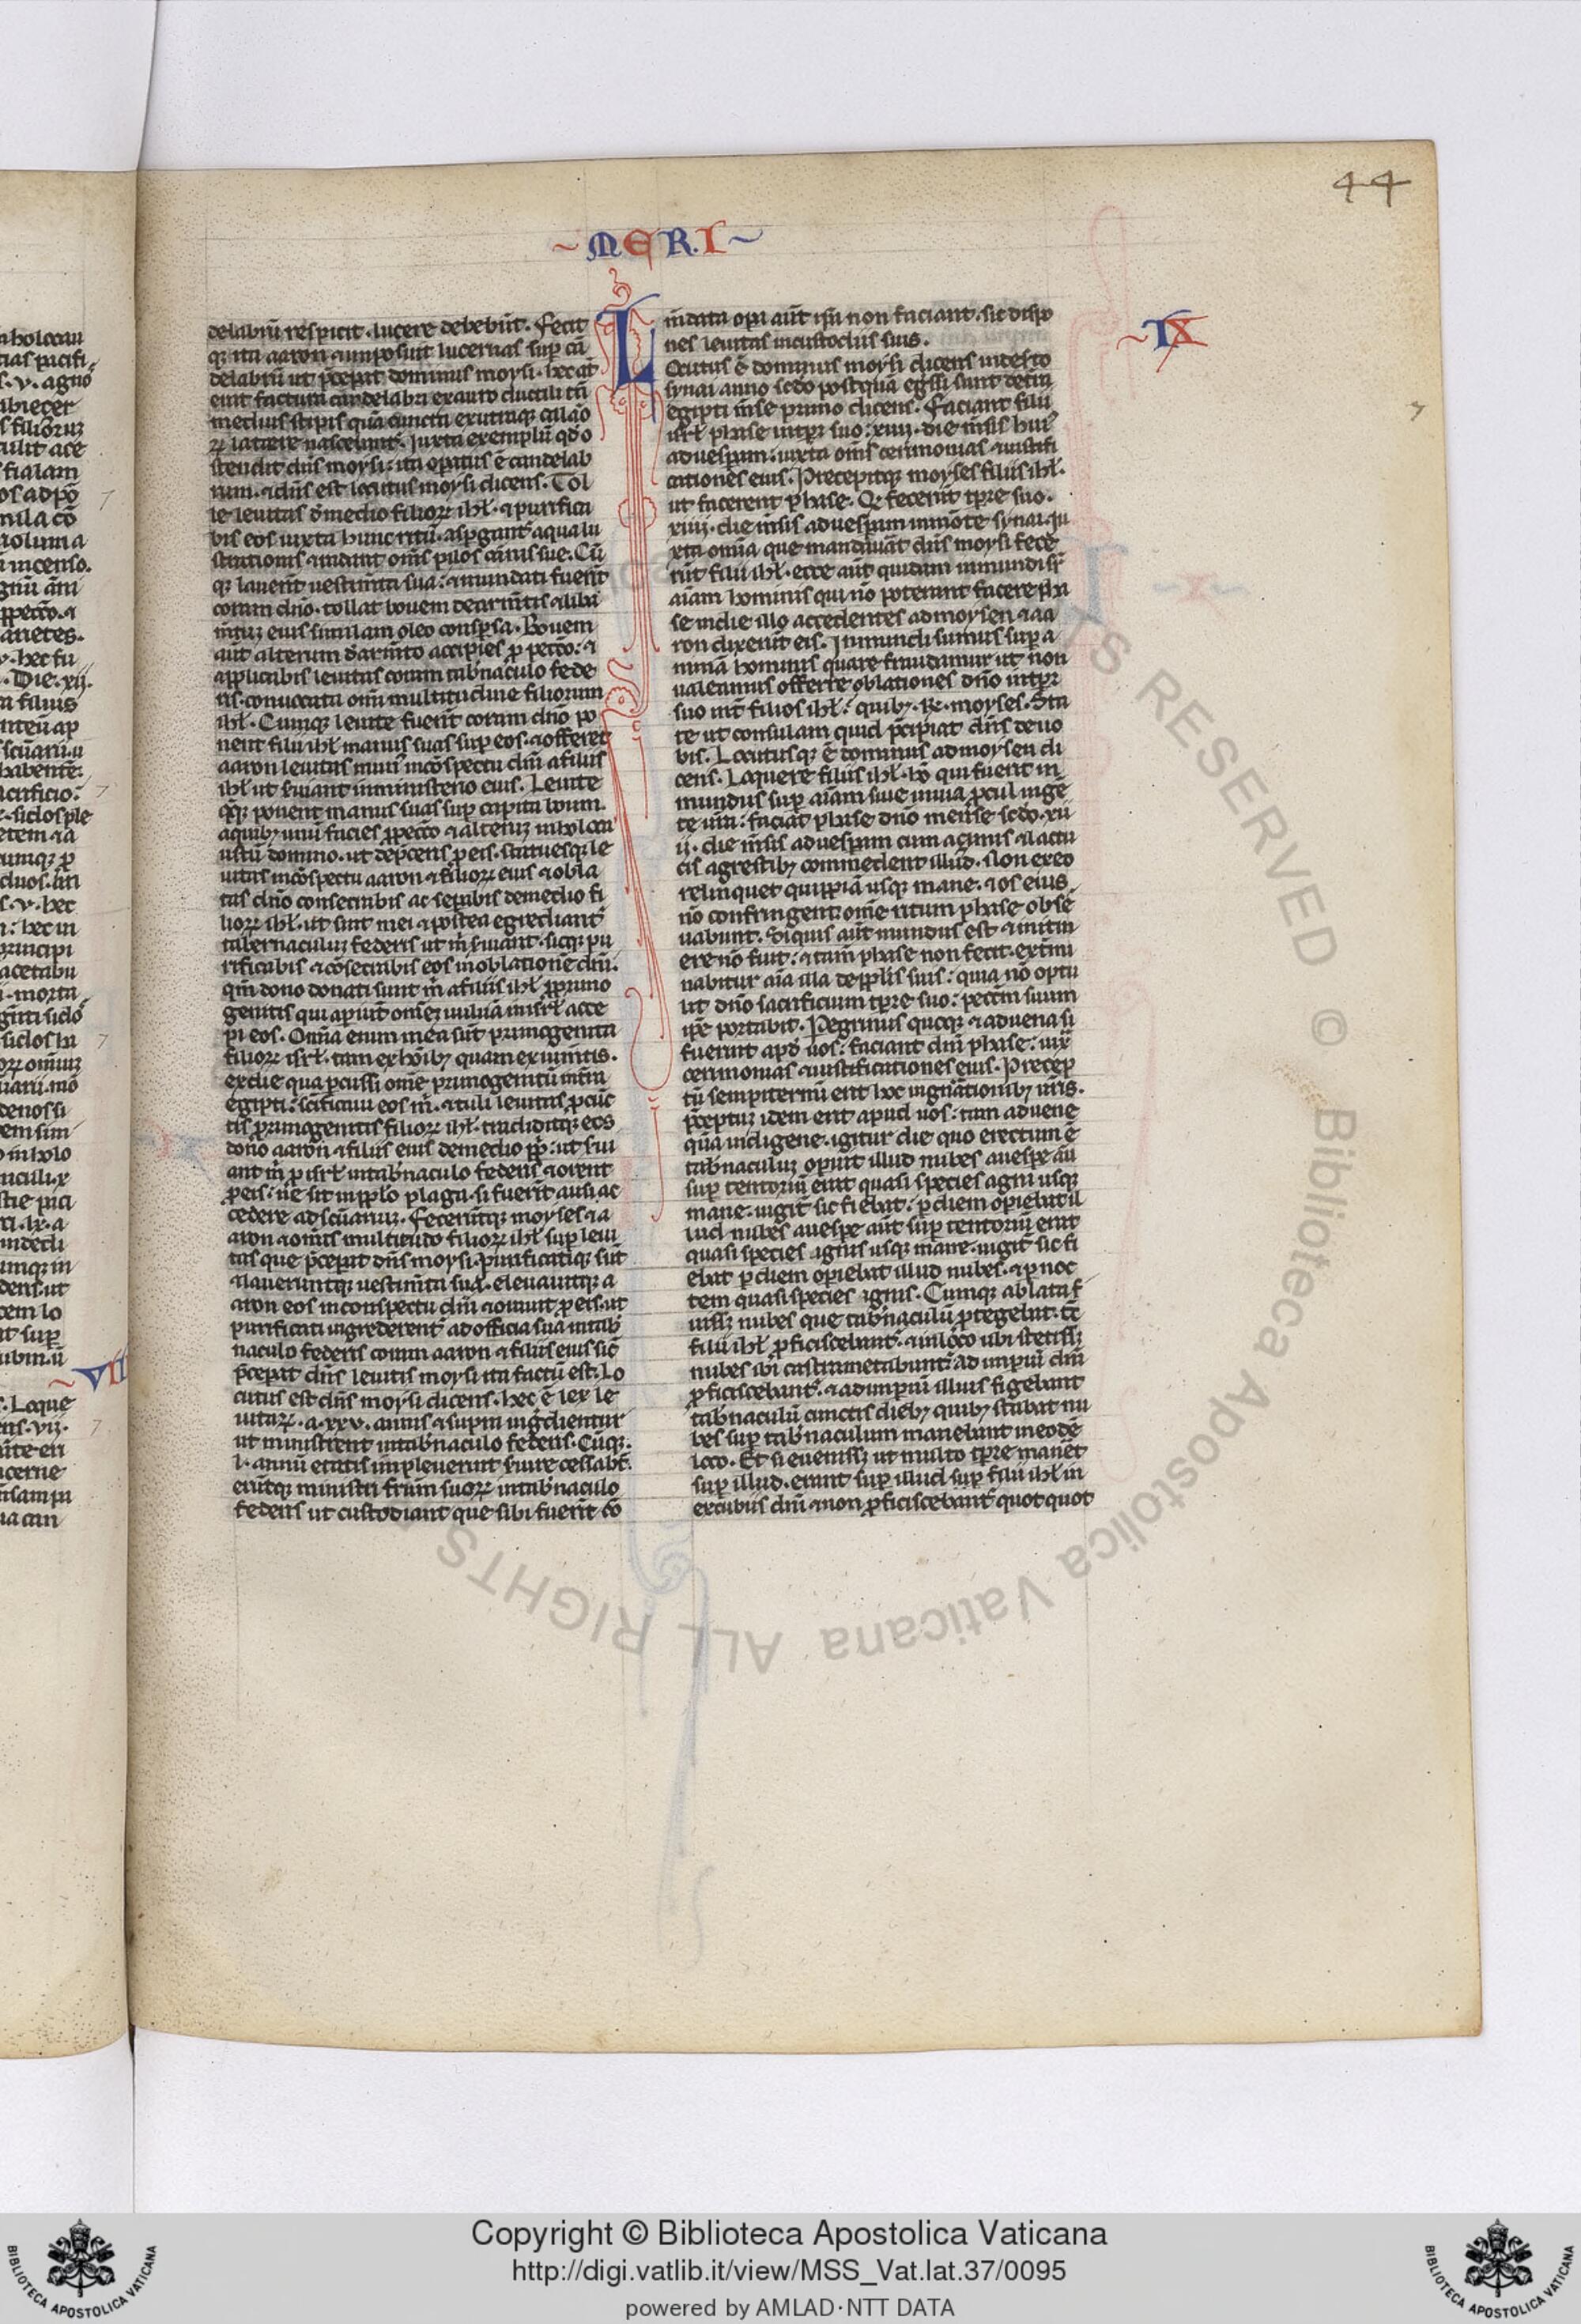 44
~MERI~
delabrũ respicit. lucere debebũt. Fecit
qȝ ita aaron. ⁊ imposuit lucernas sup cã
delabrũ ut p̃cepit dominus moysi. hec aũt
erat factura candelabri ex auro ductili tã
medius stipes quã cuncta ex utroqȝ calão
rꝝ latere nascebant᷑. Iuxta exemplũ qđ o
stendit dñs moysi: ita opatus ẽ candelab
rum. ⁊ dñs est locutus moysi dicens. Tol
le leuitas đ medio filioꝝ iħl. ⁊ purifica
bis eos iuxta hunc ritũ. aspgant᷑ aqua lu
strationis ⁊ radant om̃s pilos carnis sue. Cũ
qȝ lauerĩt uestimta sua: ⁊ mundati fuerĩt
coram dño. tollãt bouem de armĩtis ⁊ liba
mtuȝ eius similam oleo conspsa. Bouem
aũt alterum đ armĩto accipies ꝓ pecc̃o: ⁊
applicabis leuitas coram tab̃naculo fede
ris. conuocata om̃i multitudine filiorum
iħl. Cumqȝ leuite fuerĩt coram dño po
nent filii iħl manus suas sup eos. ⁊ offeret
aaron leuitas mun᷑ in cõspectu dñi a filiis
iħl ut s̃uiant in ministerio eius. Leuite
qq̃ȝ ponent manus suas sup capita boum.
a quibȝ unũ facies ꝓ pecc̃o ⁊ alteruȝ in holoca
ustũ domino. ut dep̃ceris ꝓ eis. statuesqȝ le
uitas in cõspectu aaron ⁊ filioꝝ eius ⁊ obla
tas dño consecrabis ac sepabis de medio fi
lioꝝ iħl. ut sint mei ⁊ postea egrediant᷑
tabernaculuȝ federis ut m̃ s̃uiant. sicqȝ pu
rificabis ⁊ cõsecrabis eos in oblationẽ dñi.
qm̃ dono donati sunt m̃ a filiis iħl ꝓ primo
genitis qui apiũt om̃eȝ uuluã in isrł acce
pi eos. Om̃ia enim mea sũt primogenita
filioꝝ isrł. tam ex hõibȝ quam ex iumtis.
ex die qua pcussi om̃e primogenitũ in t̃ra
egipti: sc̃ificaui eos m̃. ⁊ tuli leuitas ꝓ cũc
tis primogenitis filioꝝ iħl. tradidiqȝ eos
dono aaron ⁊ filiis eius de medio pp̃li: ut s̃ui
ant m̃ ꝓ isrł in tab̃naculo federis ⁊ orent
ꝓ eis: ne sit in ppło plaga. si fuerĩt ausi ac
cedere ad sc̃uariuȝ. Fecerũtqȝ moyses ⁊ a
aron ⁊ om̃is multitudo filioꝝ iħl sup leui
tas que p̃cepat dñs moysi. Purificatiqȝ sũt
⁊ lauerũtqȝ uestimta sua. eleuauitqȝ a
aron eos in conspectu dñi ⁊ orauit ꝓ eis. ut
purificati ingrederent᷑ ad officia sua in tab̃
naculo federis coram aaron ⁊ filiis eius sic̃
p̃cepat dñs leuitis moysi ita factũ est. Lo
cutus est dñs moysi dicens. hec ẽ lex le
uitaꝝ. a .xxv. annis ⁊ supra ingredientur
ut ministrent in tab̃naculo federis. Cũqȝ
.l. annũ etatis impleuerint s̃uire cessabt̃.
erũtqȝ ministri fr̃um suoꝝ in tab̃naculo
federis ut custodiant que sibi fuerĩt cõ
m̃data opa aũt ip̃a non faciant. sic dispo
nes leuitas in custodiis suis.
Locutus ẽ dominus moysi dicens in deserto
synai anno sc̃do postquã eg̃ssi sunt de t̃ra
egipti m̃se primo dicens. Faciant filii
isrł phase in tpȝ suo: xiiii. die m̃sis hui᷑
ad uespam. iuxta om̃s cerimonias ⁊ iustifi
cationes eius. Precepitqȝ moyses filiis iħl.
ut facerent phase. Q̃ fecerũt tp̃re suo.
xiiii. die m̃sis ad uespam in mõte synai. iu
xta om̃ia que mandauãt dñs moysi fece
rũt filii iħl. ecce aũt quidam inmundi sr̃
aĩam hominis qui nõ poterant facere pha
se in die illo accedentes ad moysen ⁊ aa
ron dixerũt eis. Inmundi sumus sup a
nima hominis quare fraudamur ut non
ualeamus offerre oblationes dño in tpȝ
suo int̃ filios iħl: quibȝ. R̃. moyses. Sta
te ut consulam quid p̃cipiat dñs de uo
bis. Locutusqȝ ẽ dominus ad moysen di
cens. Loquere filiis iħl. hõ qui fuerit in
mundus sup aĩam siue in uia ꝓcul in ge
te ur̃a: faciat phase dño mense sc̃do. xii
ii. die m̃sis ad uespam cum açimis ⁊ lactu
cis agrestibȝ commedent illud. Non ex eo
relinquet quippiã usqȝ mane. ⁊ os eius
nõ confringent: om̃e ritum phase obse
uabunt. Si quis aũt mundus est ⁊ in itin
ere nõ fuit: ⁊ tam̃ phase non fecit. ext̃mi
nabitur aĩa illa de ppłis suis: quia nõ optu
lit dño sacrificium tp̃re suo: pecc̃m suum
ip̃e portabit. Pegrinus quoqȝ ⁊ aduena si
fuerint apđ uos: faciant dñi phase: iux̃
cerimonias ⁊ iustificationes eius. Precep
tũ sempiternũ erit hoc in gñationibȝ ur̃is.
p̃ceptuȝ idem erit apud uos: tam aduene
quã indigene. igitur die quo erectum ẽ
tab̃naculuȝ opuit illud nubes a uespe aũt
sup tentoriũ erat quasi species agni usqȝ
mane. iugit᷑ sic fiebat: p diem opiebat il
lud nubes a uespe aũt sup tentoriũ erat
quasi species agnis usqȝ mane. iugit᷑ sic fi
ebat p diem opiebat illud nubes. ⁊ p noc
tem quasi species ignis. Cumqȝ ablata f
uissȝ nubes que tab̃naculũ ꝓtegebat. tc̃
filii iħl ꝓficiscebant᷑. ⁊ in loco ubi stetissȝ
nubes ibi castrametabunt᷑ ad impiũ dñi
ꝓficiscebant᷑. ⁊ ad impiũ illius figebant
tab̃naculũ cunctis diebȝ quibȝ stabat nu
bes sup tab̃naculum manebant in eodẽ
loco. Et si euenissȝ ut multo tp̃re manẽt
sup illud. erant sup illud sup filii iħl in
excubiis dñi ⁊ non ꝓficiscebant᷑ quot quot
~IX
ALL RIGHTS RESERVED © Biblioteca Apostolica Vaticana
Copyright © Biblioteca Apostolica Vaticana
http://digi.vatlib.it/view/MSS_Vat.lat.37/0095
powered by AMLAD·NTT DATA
BIBLIOTECA APOSTOLICA VATICANA
BIBLIOTECA APOSTOLICA VATICANA